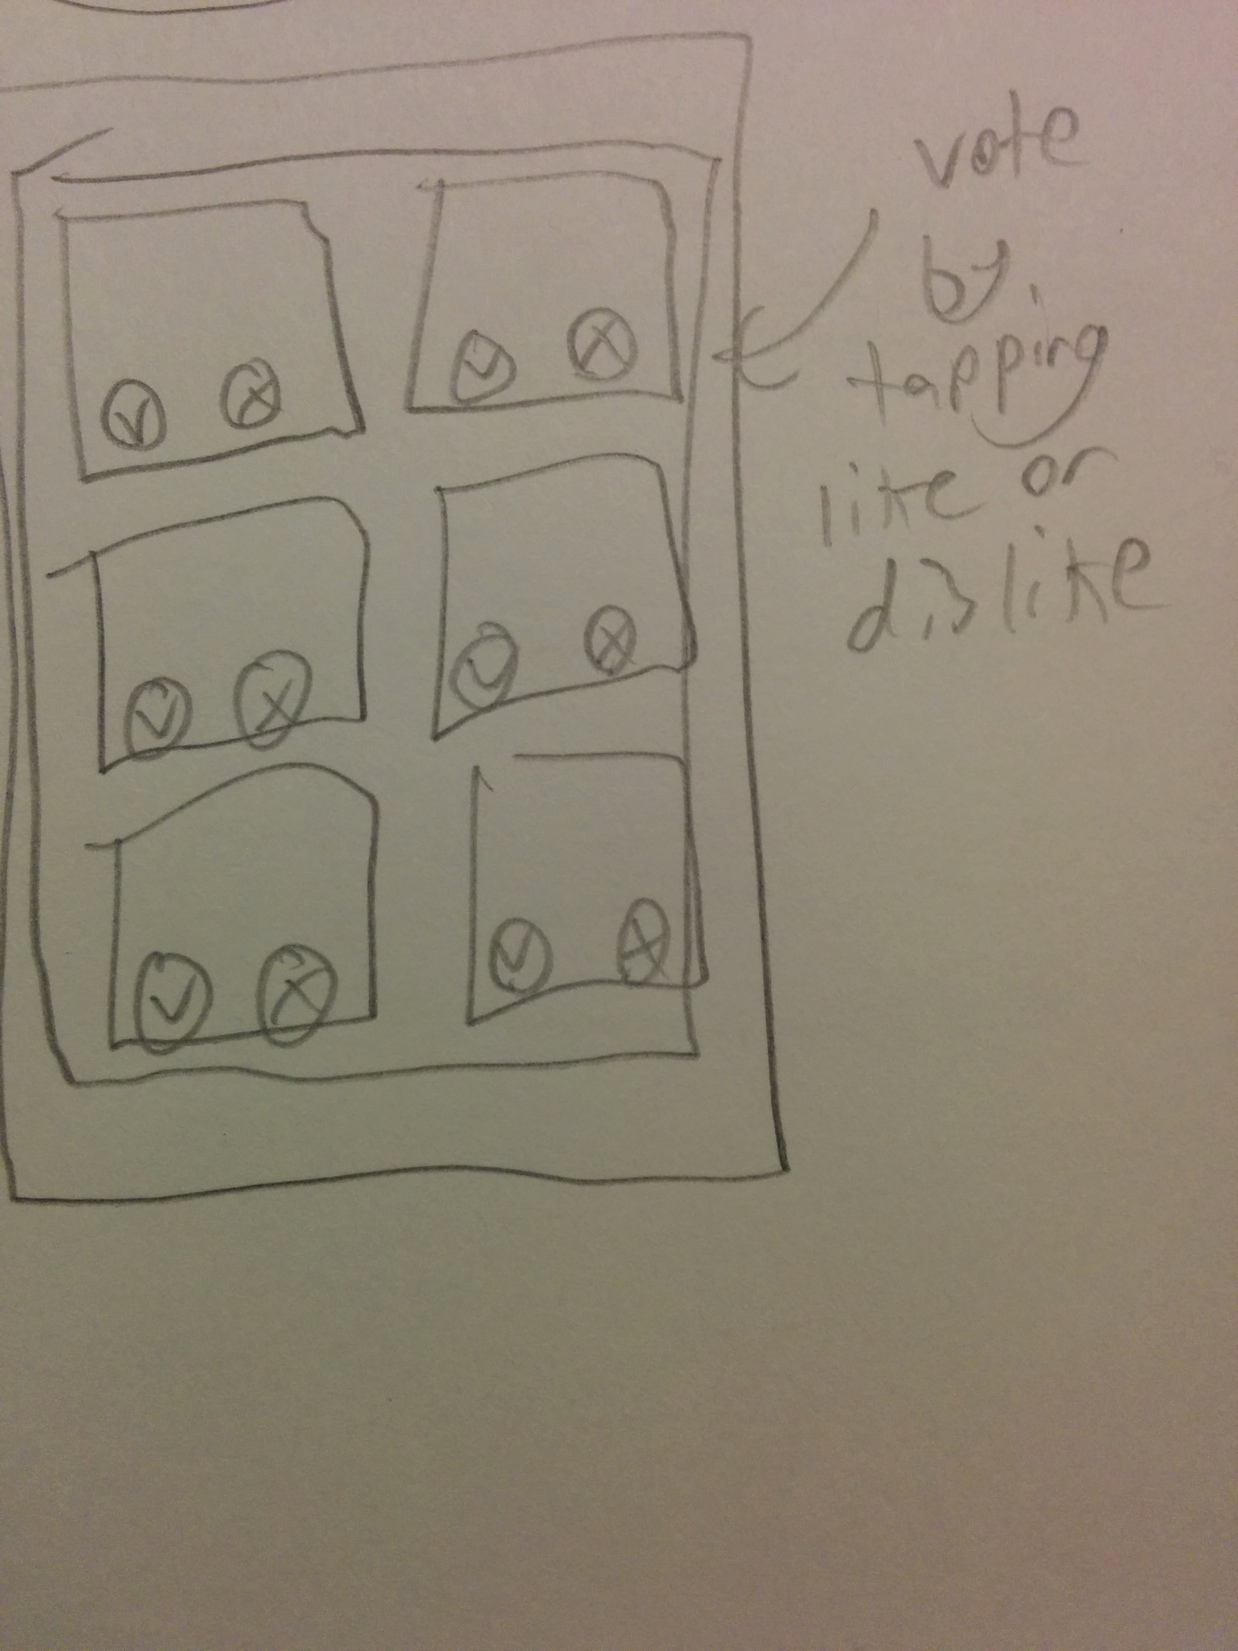 vote
by
tapping
like or
dislike